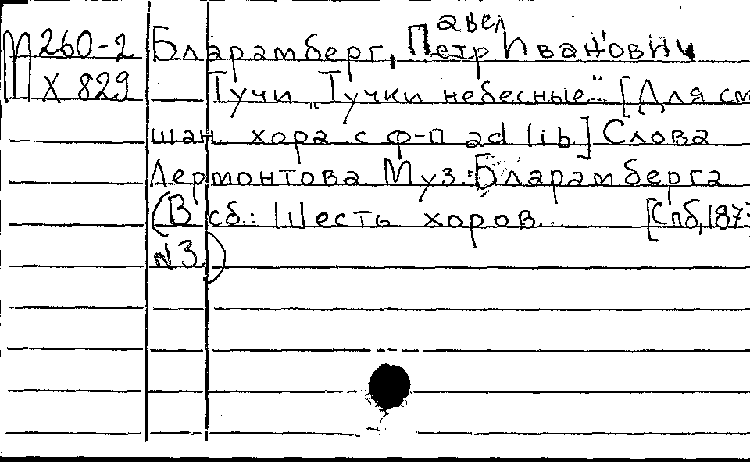 М 260-2 Бларамберг, Петр Иванович
авел
Х 829 Тучи „Тучки небесные".. [Для см
шан. хора с ф-п ad lib.] Слова
Лермонтова Муз.: Бларамберга
(В сб.: Шесть хоров.. [Спб, 187
№3.)